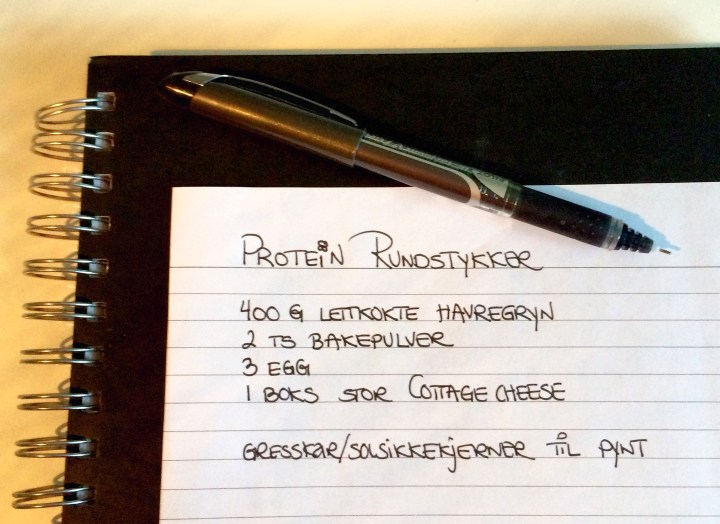 PROTEIN RUNDSTYKKER
400 G LETTKOKTE HAVREGRYN
2 TS BAKEPULVER
3 EGG
1 BOKS STOR COTTAGE CHEESE
GRESSKAR/SOLSIKKEKJERNER TIL PYNT